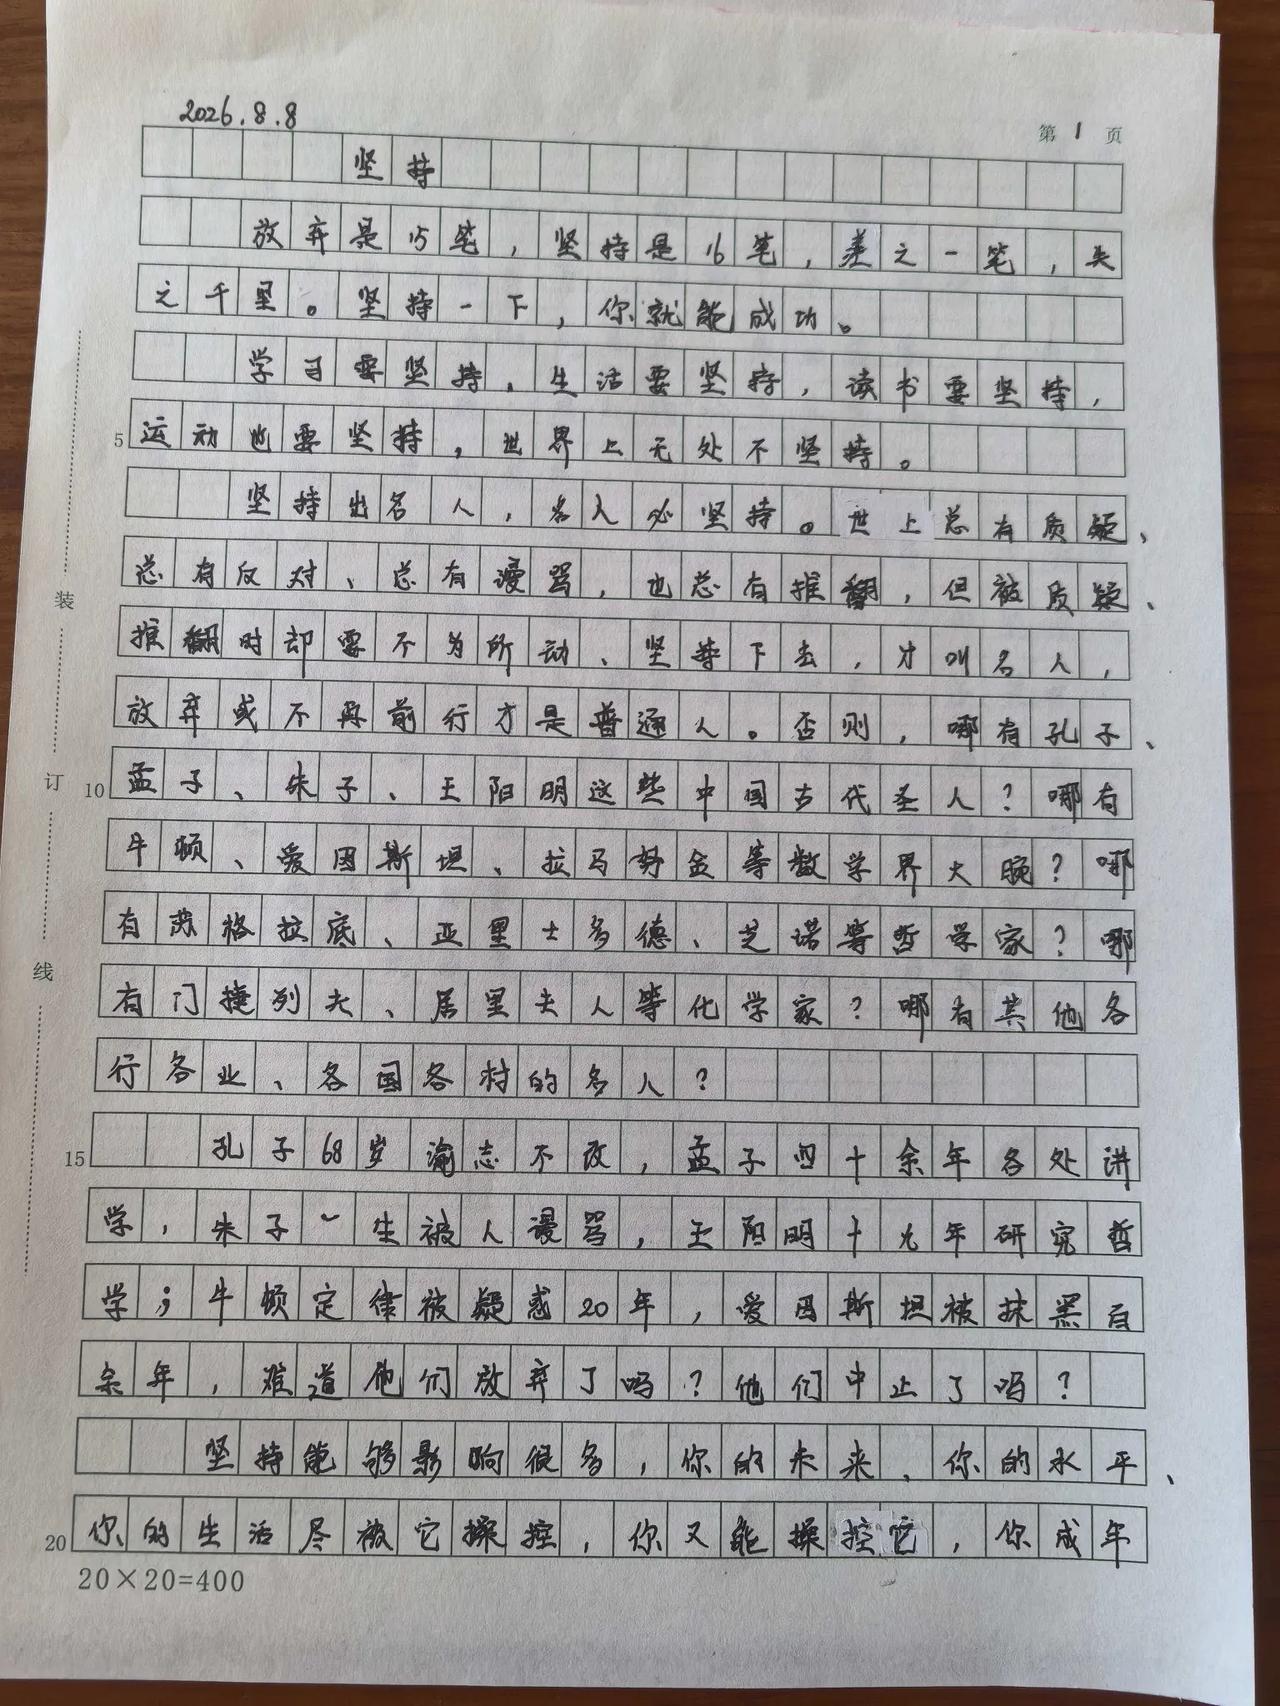 2026.8.8
第1页
坚持
放弃是15笔，坚持是16笔，差之一笔，失
之千里。坚持一下，你就能成功。
学习要坚持，生活要坚持，读书要坚持，
5 运动也要坚持，世界上无处不坚持。
坚持出名人，名人必坚持。世上总有质疑、
总有反对、总有谩骂，也总有推翻，但被质疑、
推翻时却要不为所动、坚持下去，才叫名人，
放弃或不再前行才是普通人。否则，哪有孔子、
10 孟子、朱子、王阳明这些中国古代圣人？哪有
牛顿、爱因斯坦、拉马努金等数学界大腕？哪
有苏格拉底、亚里士多德、芝诺等哲学家？哪
有门捷列夫、居里夫人等化学家？哪有其他各
行各业、各国各村的名人？
15 孔子68岁渝志不改，孟子四十余年各处讲
学，朱子一生被人谩骂，王阳明十九年研究哲
学；牛顿定律被疑惑20年，爱因斯坦被抹黑百
余年，难道他们放弃了吗？他们中止了吗？
坚持能够影响很多，你的未来、你的水平、
20 你的生活尽被它操控，你又能操控它，你成年
20×20=400
装
订
线